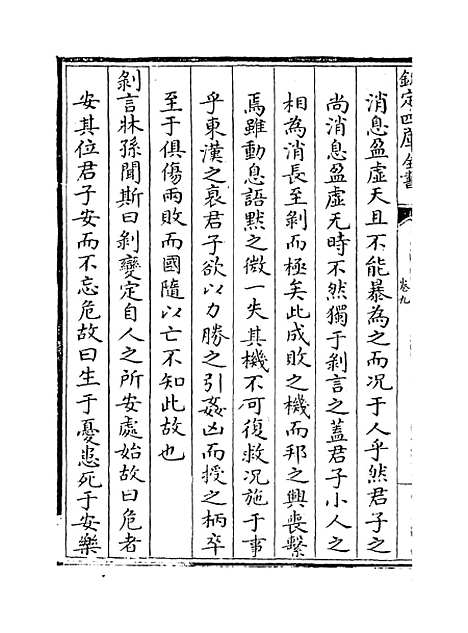 欽定四庫全書
卷九
消息盈虛天且不能暴為之而况于人乎然君子之
尚消息盈虛无時不然獨于剥言之蓋君子小人之
相為消長至剥而極矣此成敗之機而邦之興喪繫
焉雖動息語默之微一失其機不可復救况施于事
乎東漢之衰君子欲以力勝之引姦凶而授之柄卒
至于俱傷兩敗而國隨以亡不知此故也
剥言牀孫聞斯曰剥變定自人之所安處始故曰危者
安其位君子安而不忘危故曰生于憂患死于安樂